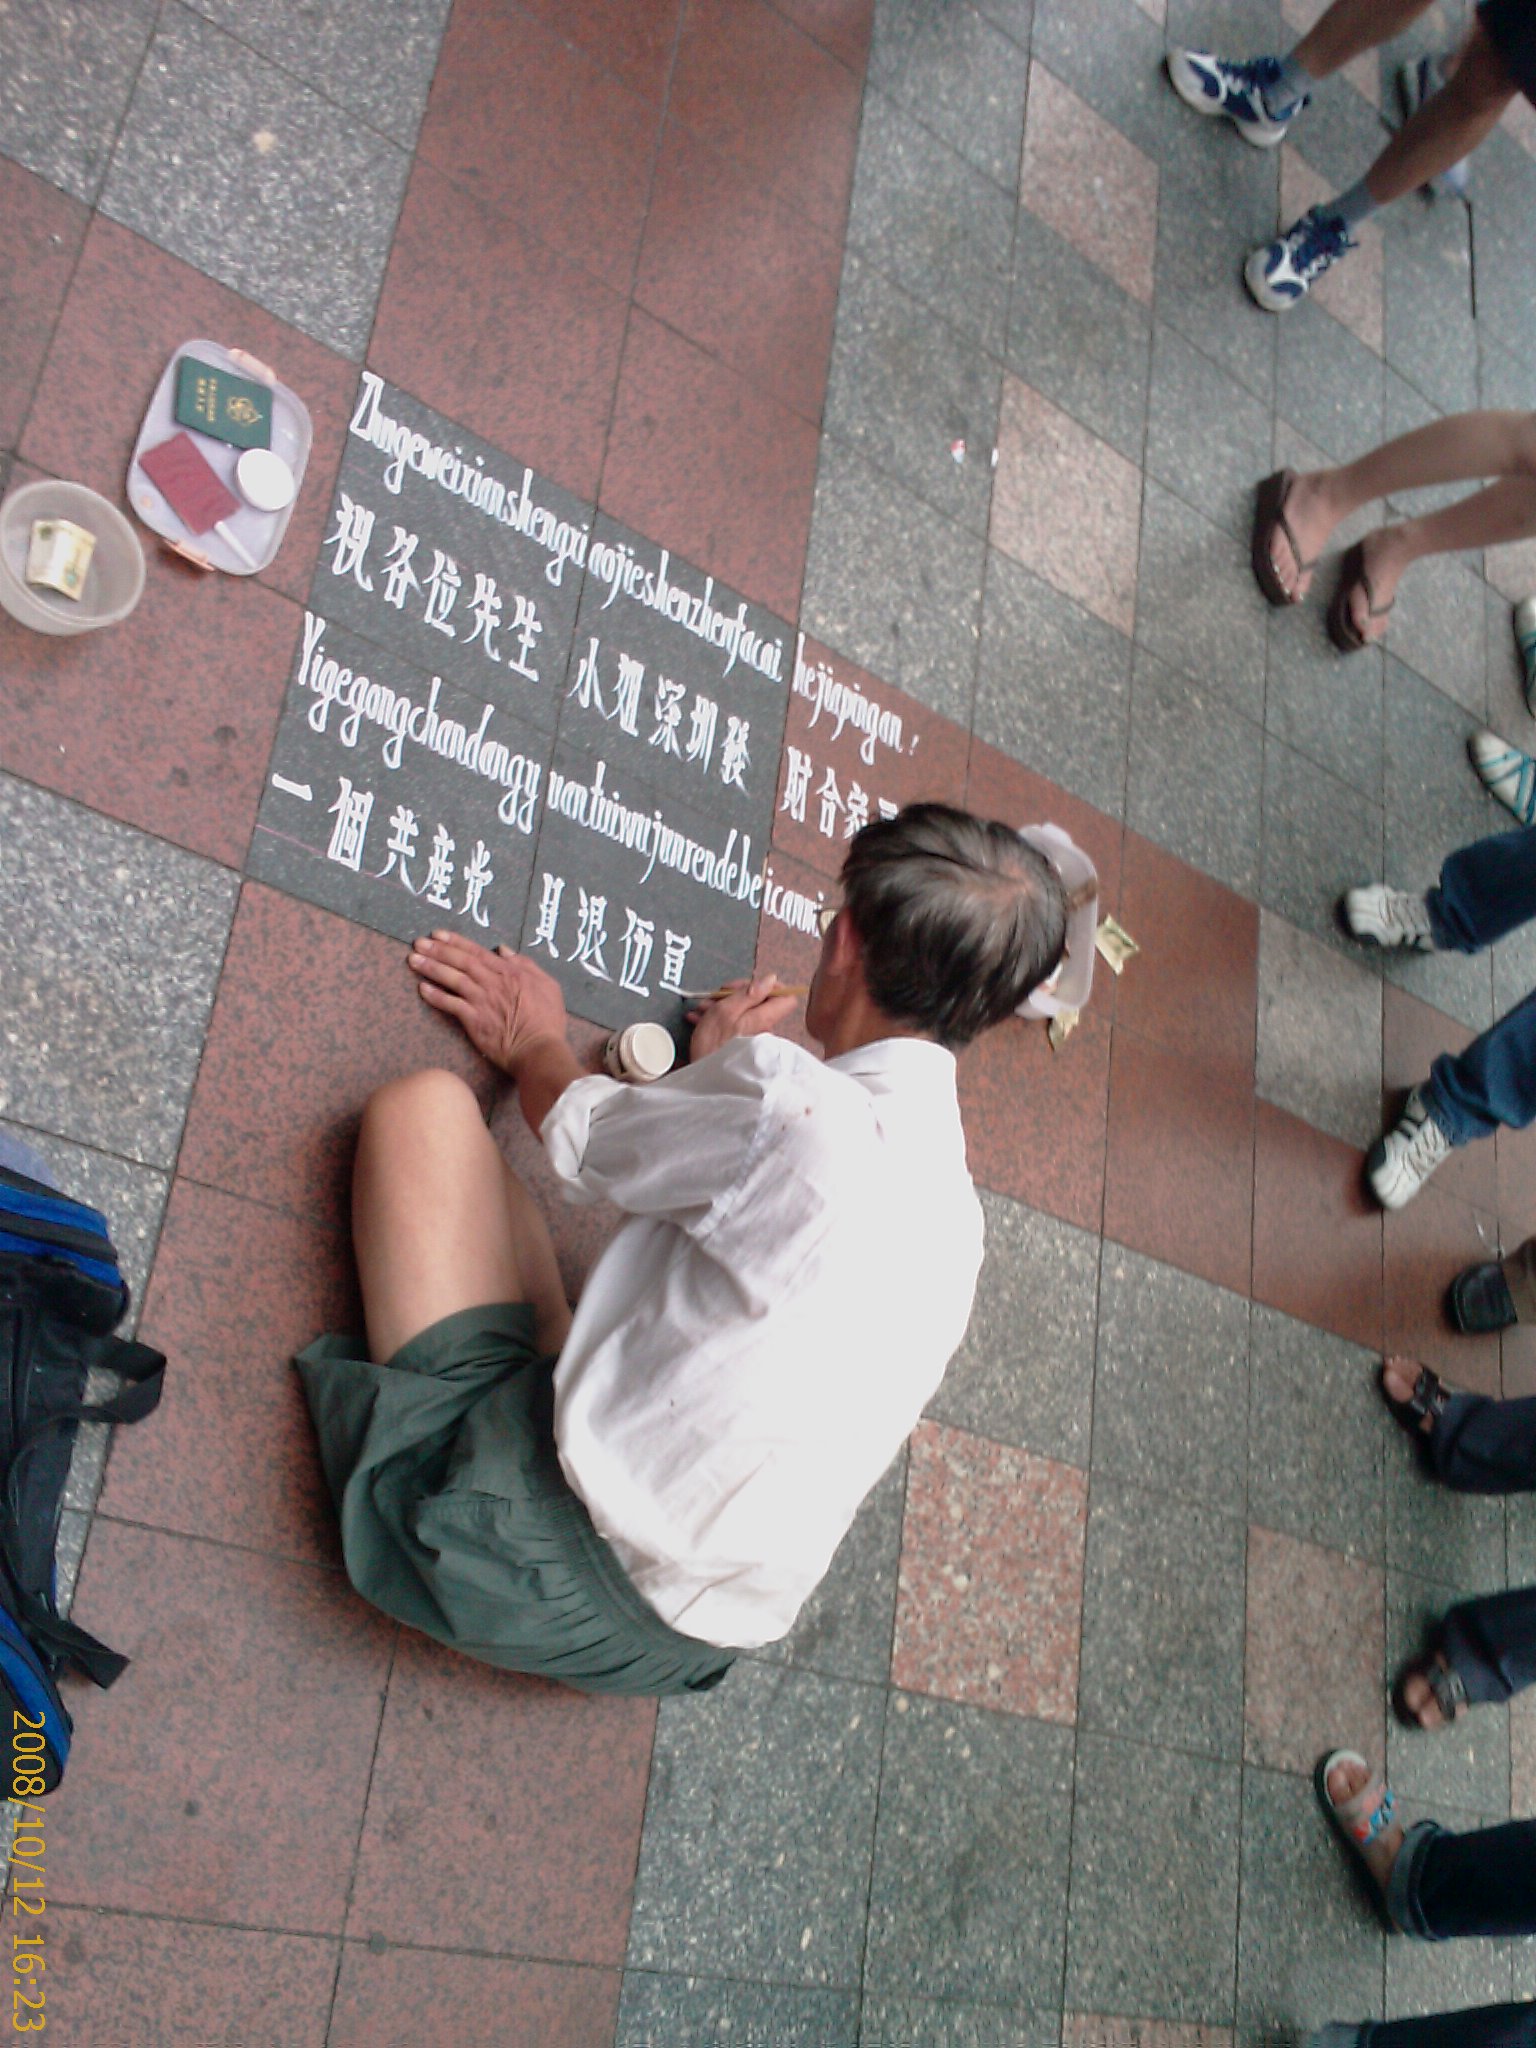 Zhugeweixianshengxiaojieshenzhenfacai hejiapingan!
祝各位先生 小姐深圳發財合家
Yigegongchandangyuantuiwujunrendebeican
一個共產党 員退伍
2008/10/12 16:23